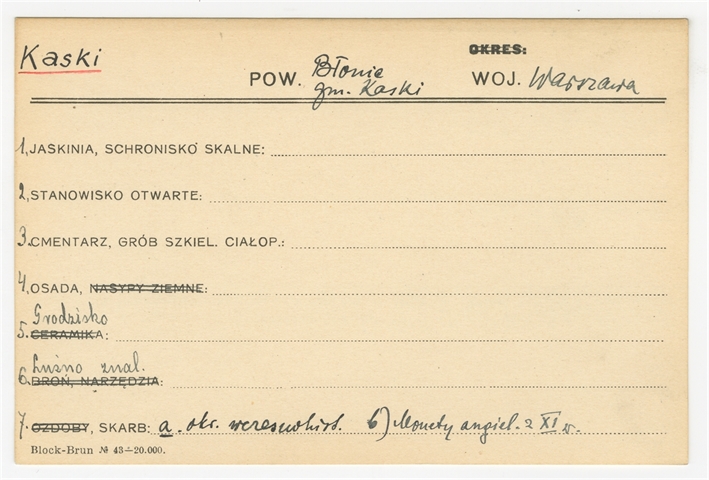 Kaski
OKRES:
POW. Błonie WOJ. Warszawa
gm. Kaski
1, JASKINIA, SCHRONISKO SKALNE:
2, STANOWISKO OTWARTE:
3. CMENTARZ, GRÓB SZKIEL. CIAŁOP.:
4, OSADA, NASYPY ZIEMNE:
Grodzisko
5. CERAMIKA:
Luźno znal.
6. BROŃ, NARZĘDZIA:
7. OZDOBY, SKARB: a. okr. wczesnohist. b) Monety angiel. z XI w.
Block-Brun № 43—20.000.